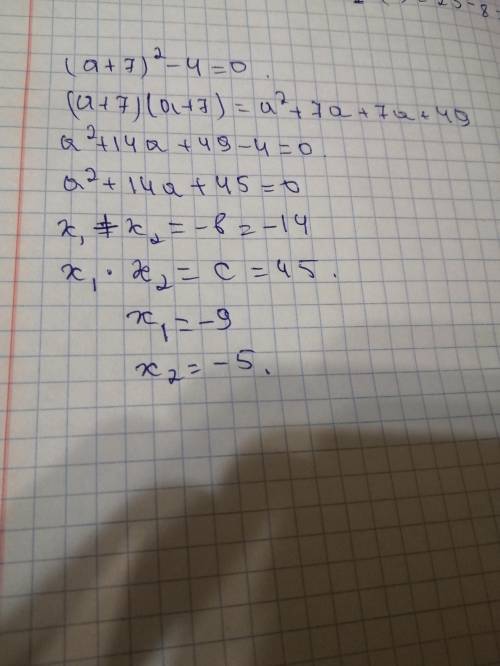 (a+7)²-4=0.
(a+7)(a+7)=a²+7a+7a+49
a²+14a+49-4=0.
a²+14a+45=0
x₁+x₂=-в=-14
x₁·x₂=c=45.
x₁=-9
x₂=-5.